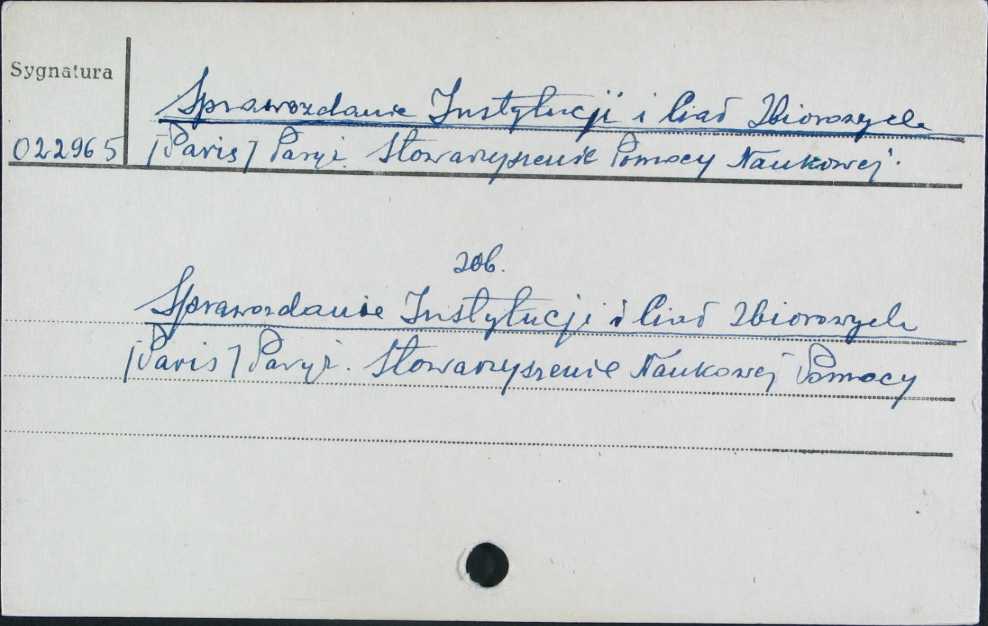 Sygnatura
Sprawozdanie Instytucji i Ciał Zbiorowych
022965 [Paris] Paryż. Stowarzyszenie Pomocy Naukowej.
zob.
Sprawozdanie Instytucji i Ciał Zbiorowych
[Paris] Paryż. Stowarzyszenie Naukowej Pomocy